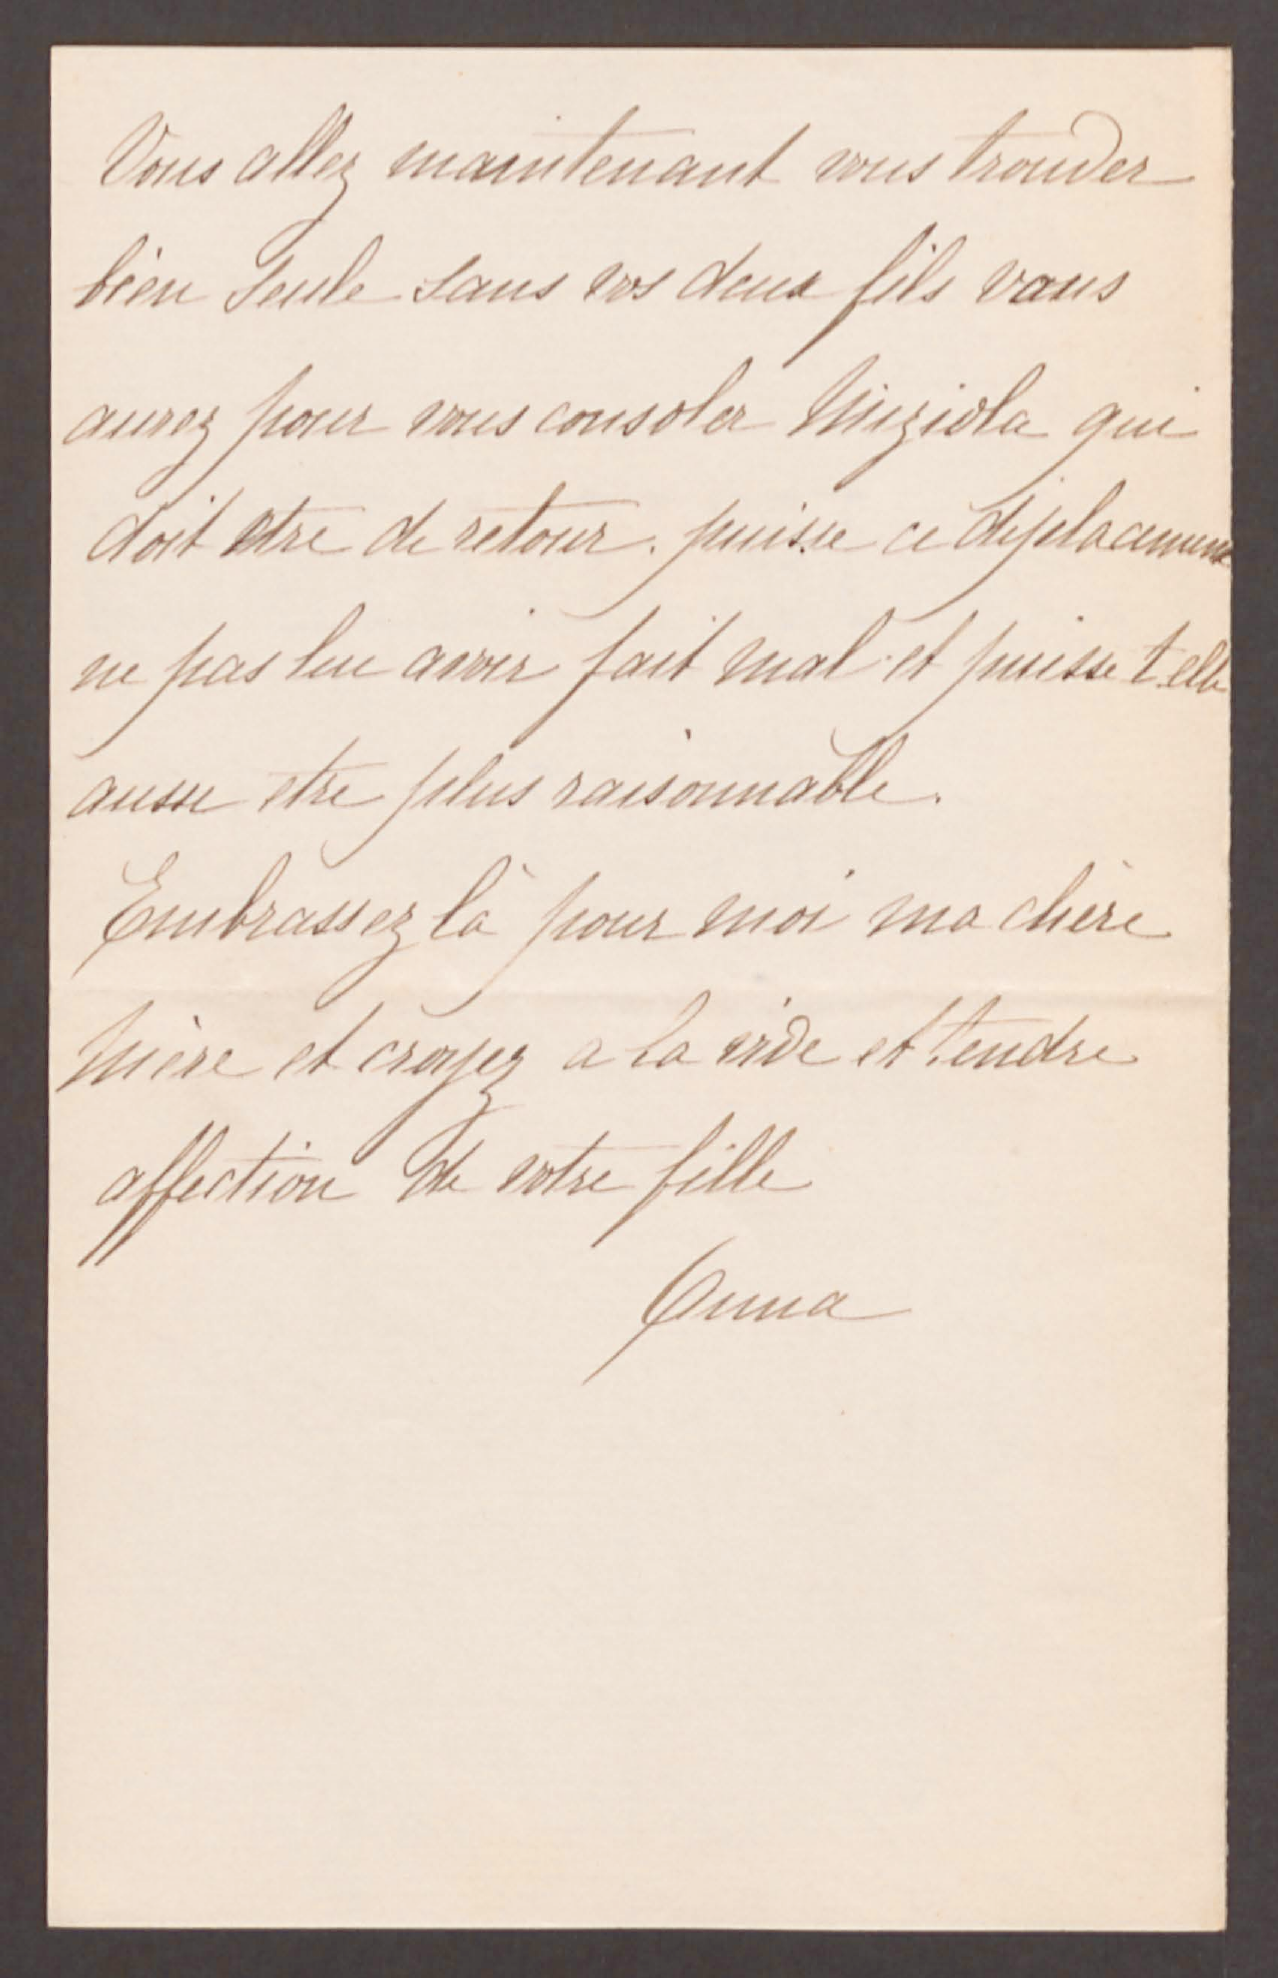 Vous allez maintenant vous trouver
bien seule sans vos deux fils vous
aurez pour vous consoler Miziola qui
doit etre de retour. puisse ce déplacement
ne pas lui avoir fait mal et puisse t elle
aussi etre plus raisonnable.
Embrassez là pour moi ma chère
mère et croyez a la vive et tendre
affection de votre fille
Anna